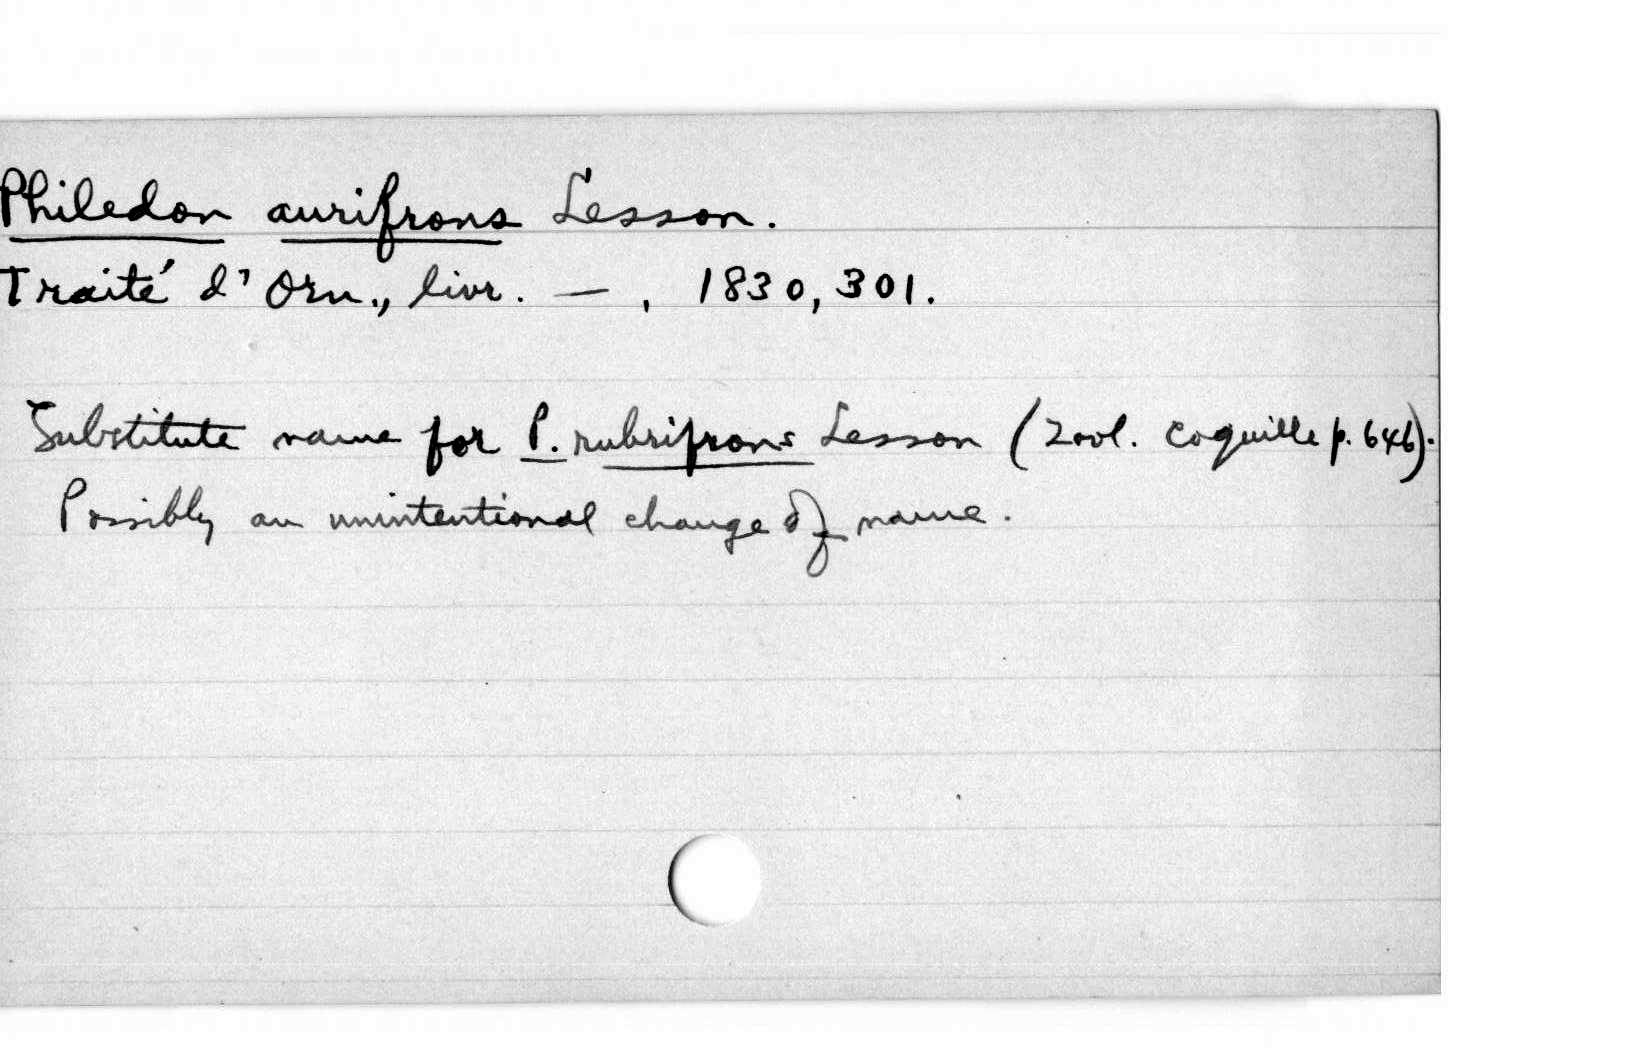 Philedon aurifrons Lesson.
Traité d'Orn., livr. — , 1830, 301.
Substitute name for P. rubrifrons Lesson (Zool. Coquille p. 646).
Possibly an unintentional change of name.